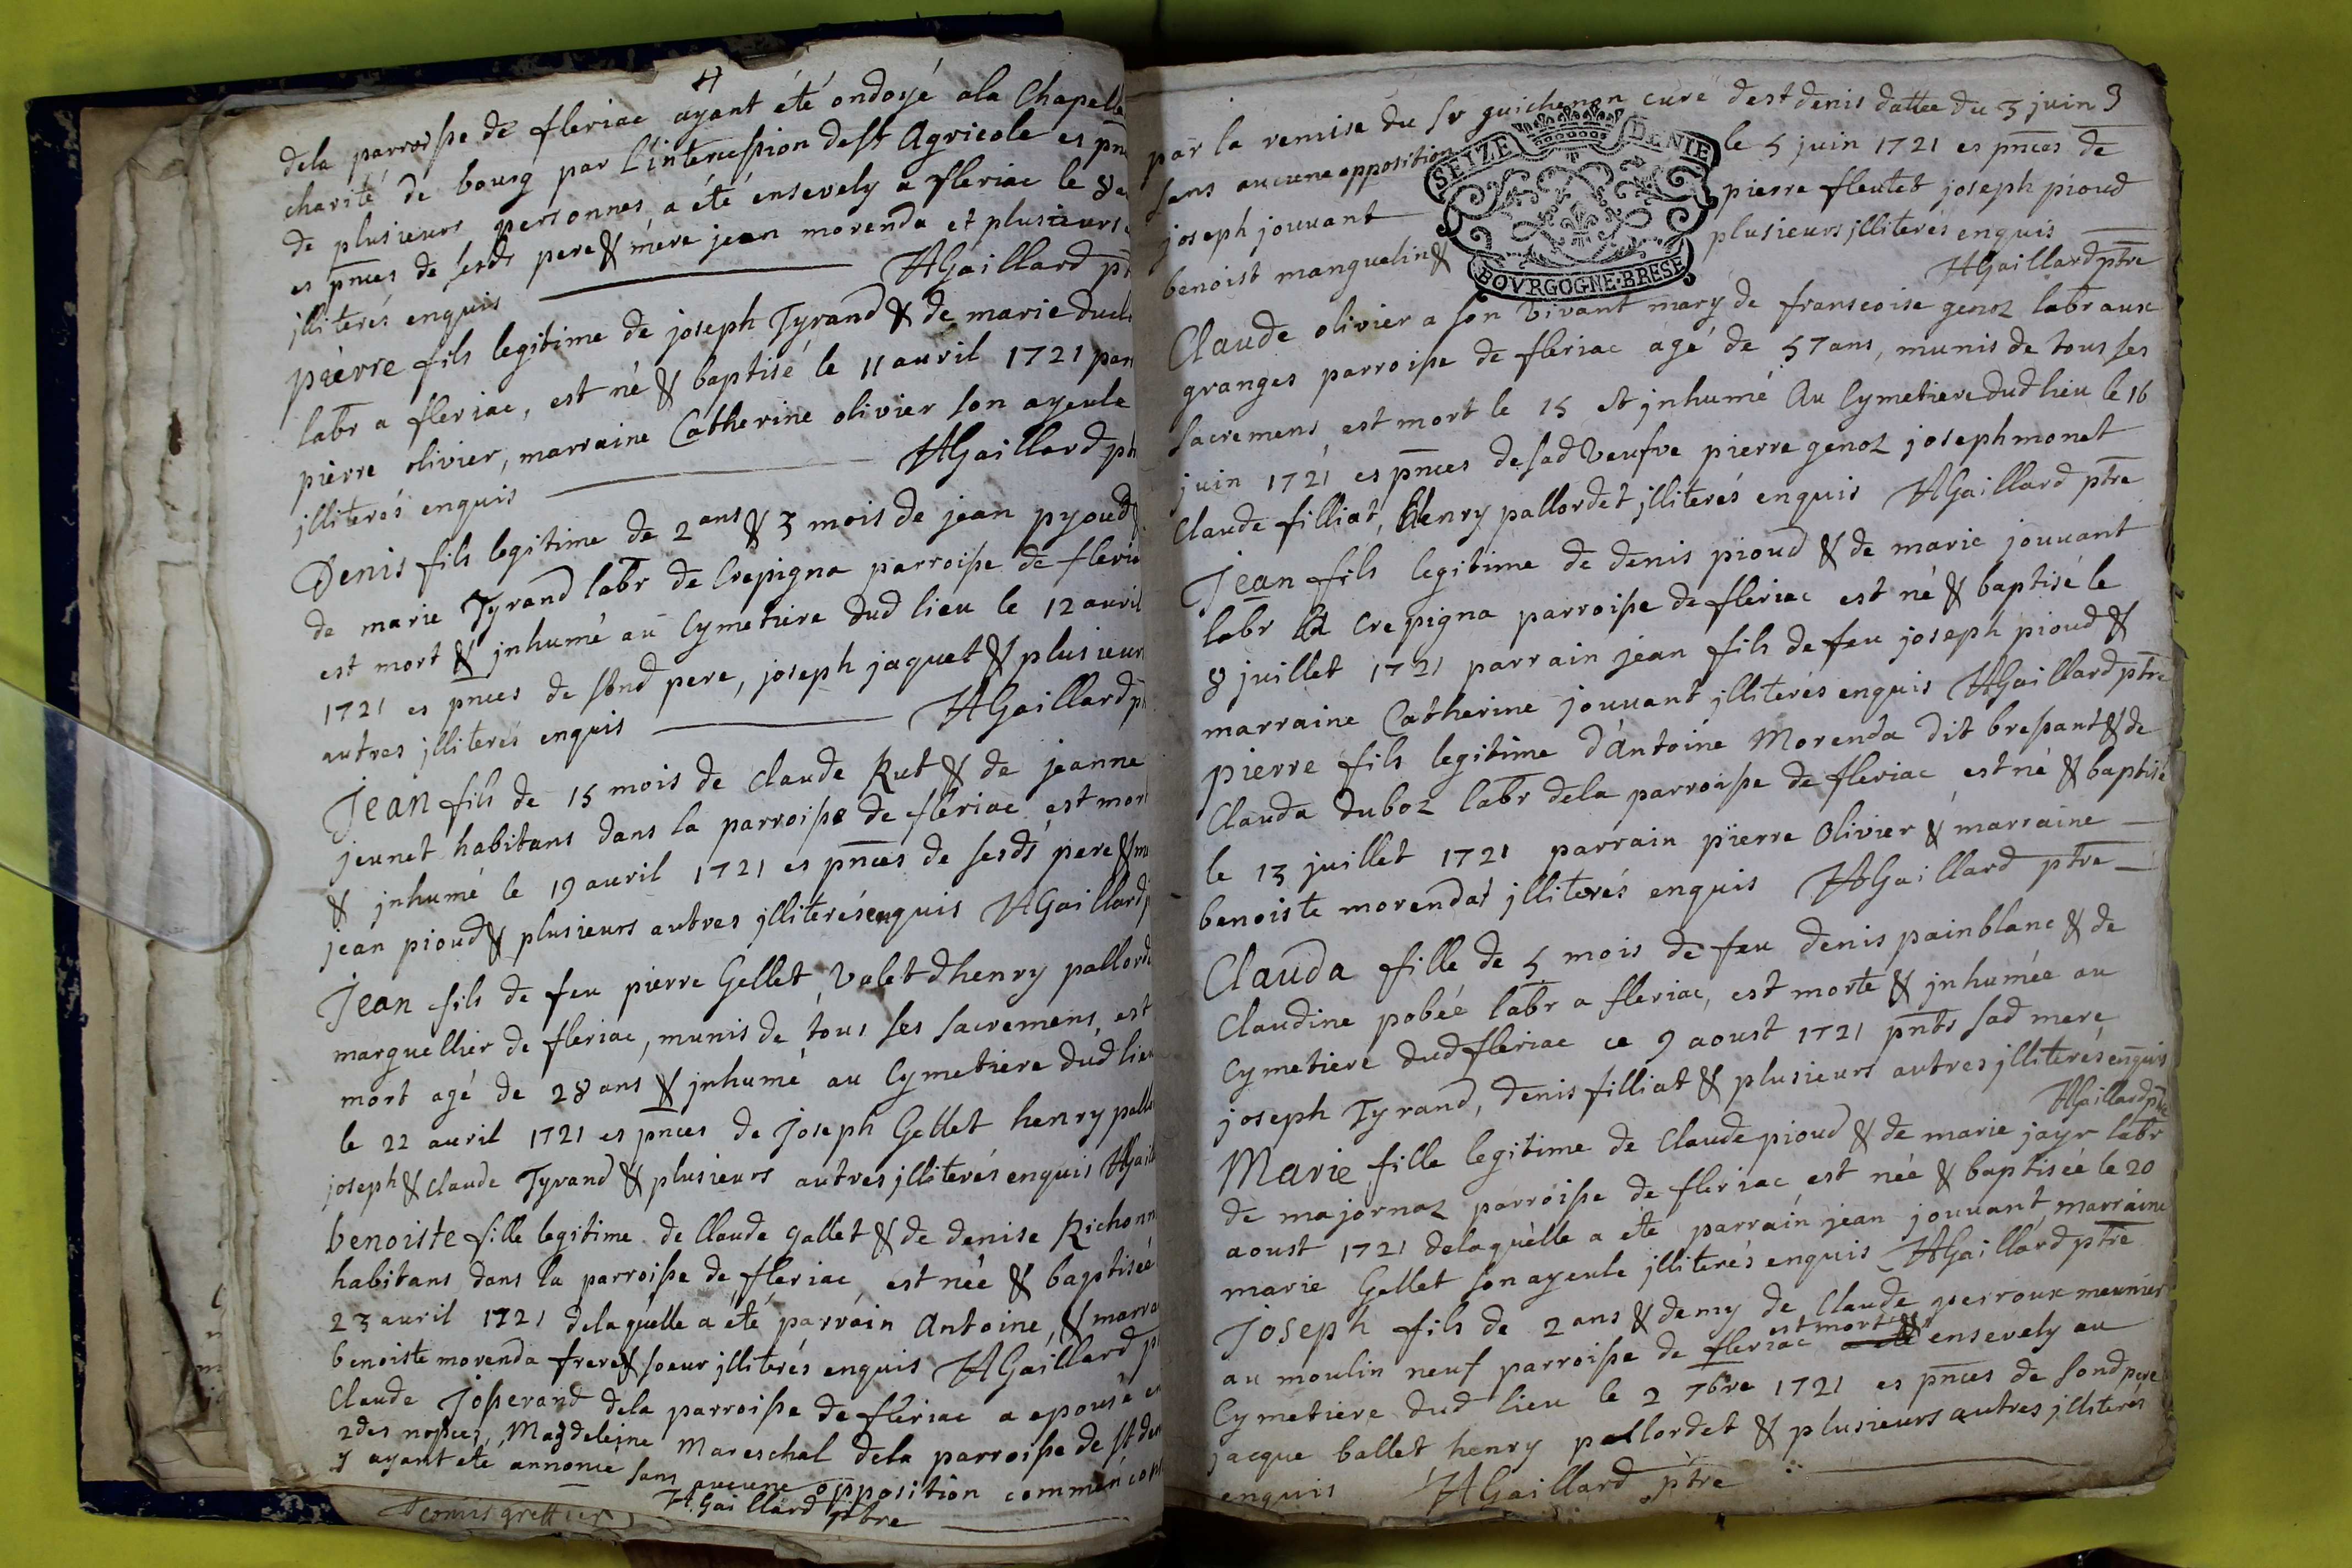 4
dela parroisse de fleriac ayant été ondoyé ala Chapelle
charité de bourg par l'intercession de st Agricole es pn
de plusieurs personnes, a été ensevely a fleriac le 8
es pnces de sesds pere & mere jean morenda et plusieurs
jlliterés enquis HGaillard pt
pierre fils legitime de joseph Tyrand & de marie ducl
labr a fleriac, est né & baptisé le 11 auril 1721 par
pierre olivier, marraine Catherine olivier son ayeule
jlliterés enquis HGaillard pt
Denis fils legitime de 2 ans & 3 mois de jean pyoud &
de marie Tyrand labr de Crepigna parroisse de fleria
est mort & jnhumé au Cymetiere dud lieu le 12 auril
1721 es pnces de sond pere, joseph jaquet & plusieurs
autres jlliterés enquis HGaillard p
Jean fils de 15 mois de claude Rut & de jeanne
jeunet habitans dans la parroisse de fleriac est mort
& jnhumé le 19 auril 1721 es pnces de sesds pere & m
jean pioud & plusieurs autres jlliterés enquis HGaillard p
Jean fils de feu pierre Gellet, valet dhenry pallord
marguellier de fleriac, munis de tous ses sacremens, est
mort agé de 28 ans & jnhumé au Cymetiere dud lieu
le 22 auril 1721 es pnces de Joseph Gellet henry pall
joseph & claude Tyrand & plusieurs autres jlliterés enquis HGaill
benoiste fille legitime de Claude gallet & de denise Richonn
habitans dans la parroisse de fleriac est née & baptisée
23 auril 1721 delaquelle a été parrain Antoine, & marra
benoiste morenda frere & soeur jlliterés enquis HGaillard p
Claude Josserand dela parroisse de fleriac a epousé e
2des nopces, Magdeleine Mareschal dela parroisse de st den
y ayant été annoncé sans aucune opposition comme
HGaillard ptre
greffier
par la remise du sr guichenon curé de st denis dattée du 3 juin 9
sans aucune opposition le 5 juin 1721 es pnces de
joseph jouuant pierre fleutet joseph pioud
benoist manguelin & plusieurs jlliterés enquis
HGaillard ptre
SEIZE DENIE
BOVRGOGNE·BRESE
Claude olivier a son vivant mary de franseoise genoz labr aux
granges parroisse de fleriac agé de 57 ans, munis de tous ses
sacremens, est mort le 15 et jnhumé Au Cymetiere dud lieu le 16
juin 1721 es pnces de sad veufve pierre genoz joseph monet
Claude filliat, henry pallordet jlliterés enquis HGaillard ptre
Jean fils legitime de denis pioud & de marie jouuant
labr a Crepigna parroisse de fleriac est né & baptisé le
8 juillet 1721 parrain jean fils de feu joseph pioud &
marraine Catherine jouuant jlliterés enquis HGaillard ptre
pierre fils legitime d'Antoine Morenda dit bressant & de
Clauda duboz labr dela parroisse de fleriac est né & baptisé
le 13 juillet 1721 parrain pierre Olivier & marraine
benoiste morenda jlliterés enquis HGaillard ptre
Clauda fille de 5 mois de feu denis painblanc & de
Claudine pobéé labr a fleriac, est morte & jnhumée au
Cymetiere dud fleriac ce 9 aoust 1721 pnts sad mere
joseph Tyrand, denis filliat & plusieurs autres jlliterés enquis
HGaillard ptre
Marie fille legitime de Claude pioud & de marie jayr labr
de majornaz parroisse de fleriac est née & baptisée le 20
aoust 1721 delaquelle a été parrain jean jouuant, marraine
marie Gellet son ayeule jlliterés enquis HGaillard ptre
Joseph fils de 2 ans & demy de Claude perroux meunier
au moulin neuf parroisse de fleriac est mort & ensevely au
Cymetiere dud lieu le 2 7bre 1721 es pnces de sond pere
jacque ballet henry pallordet & plusieurs autres jlliterés
enquis HGaillard ptre